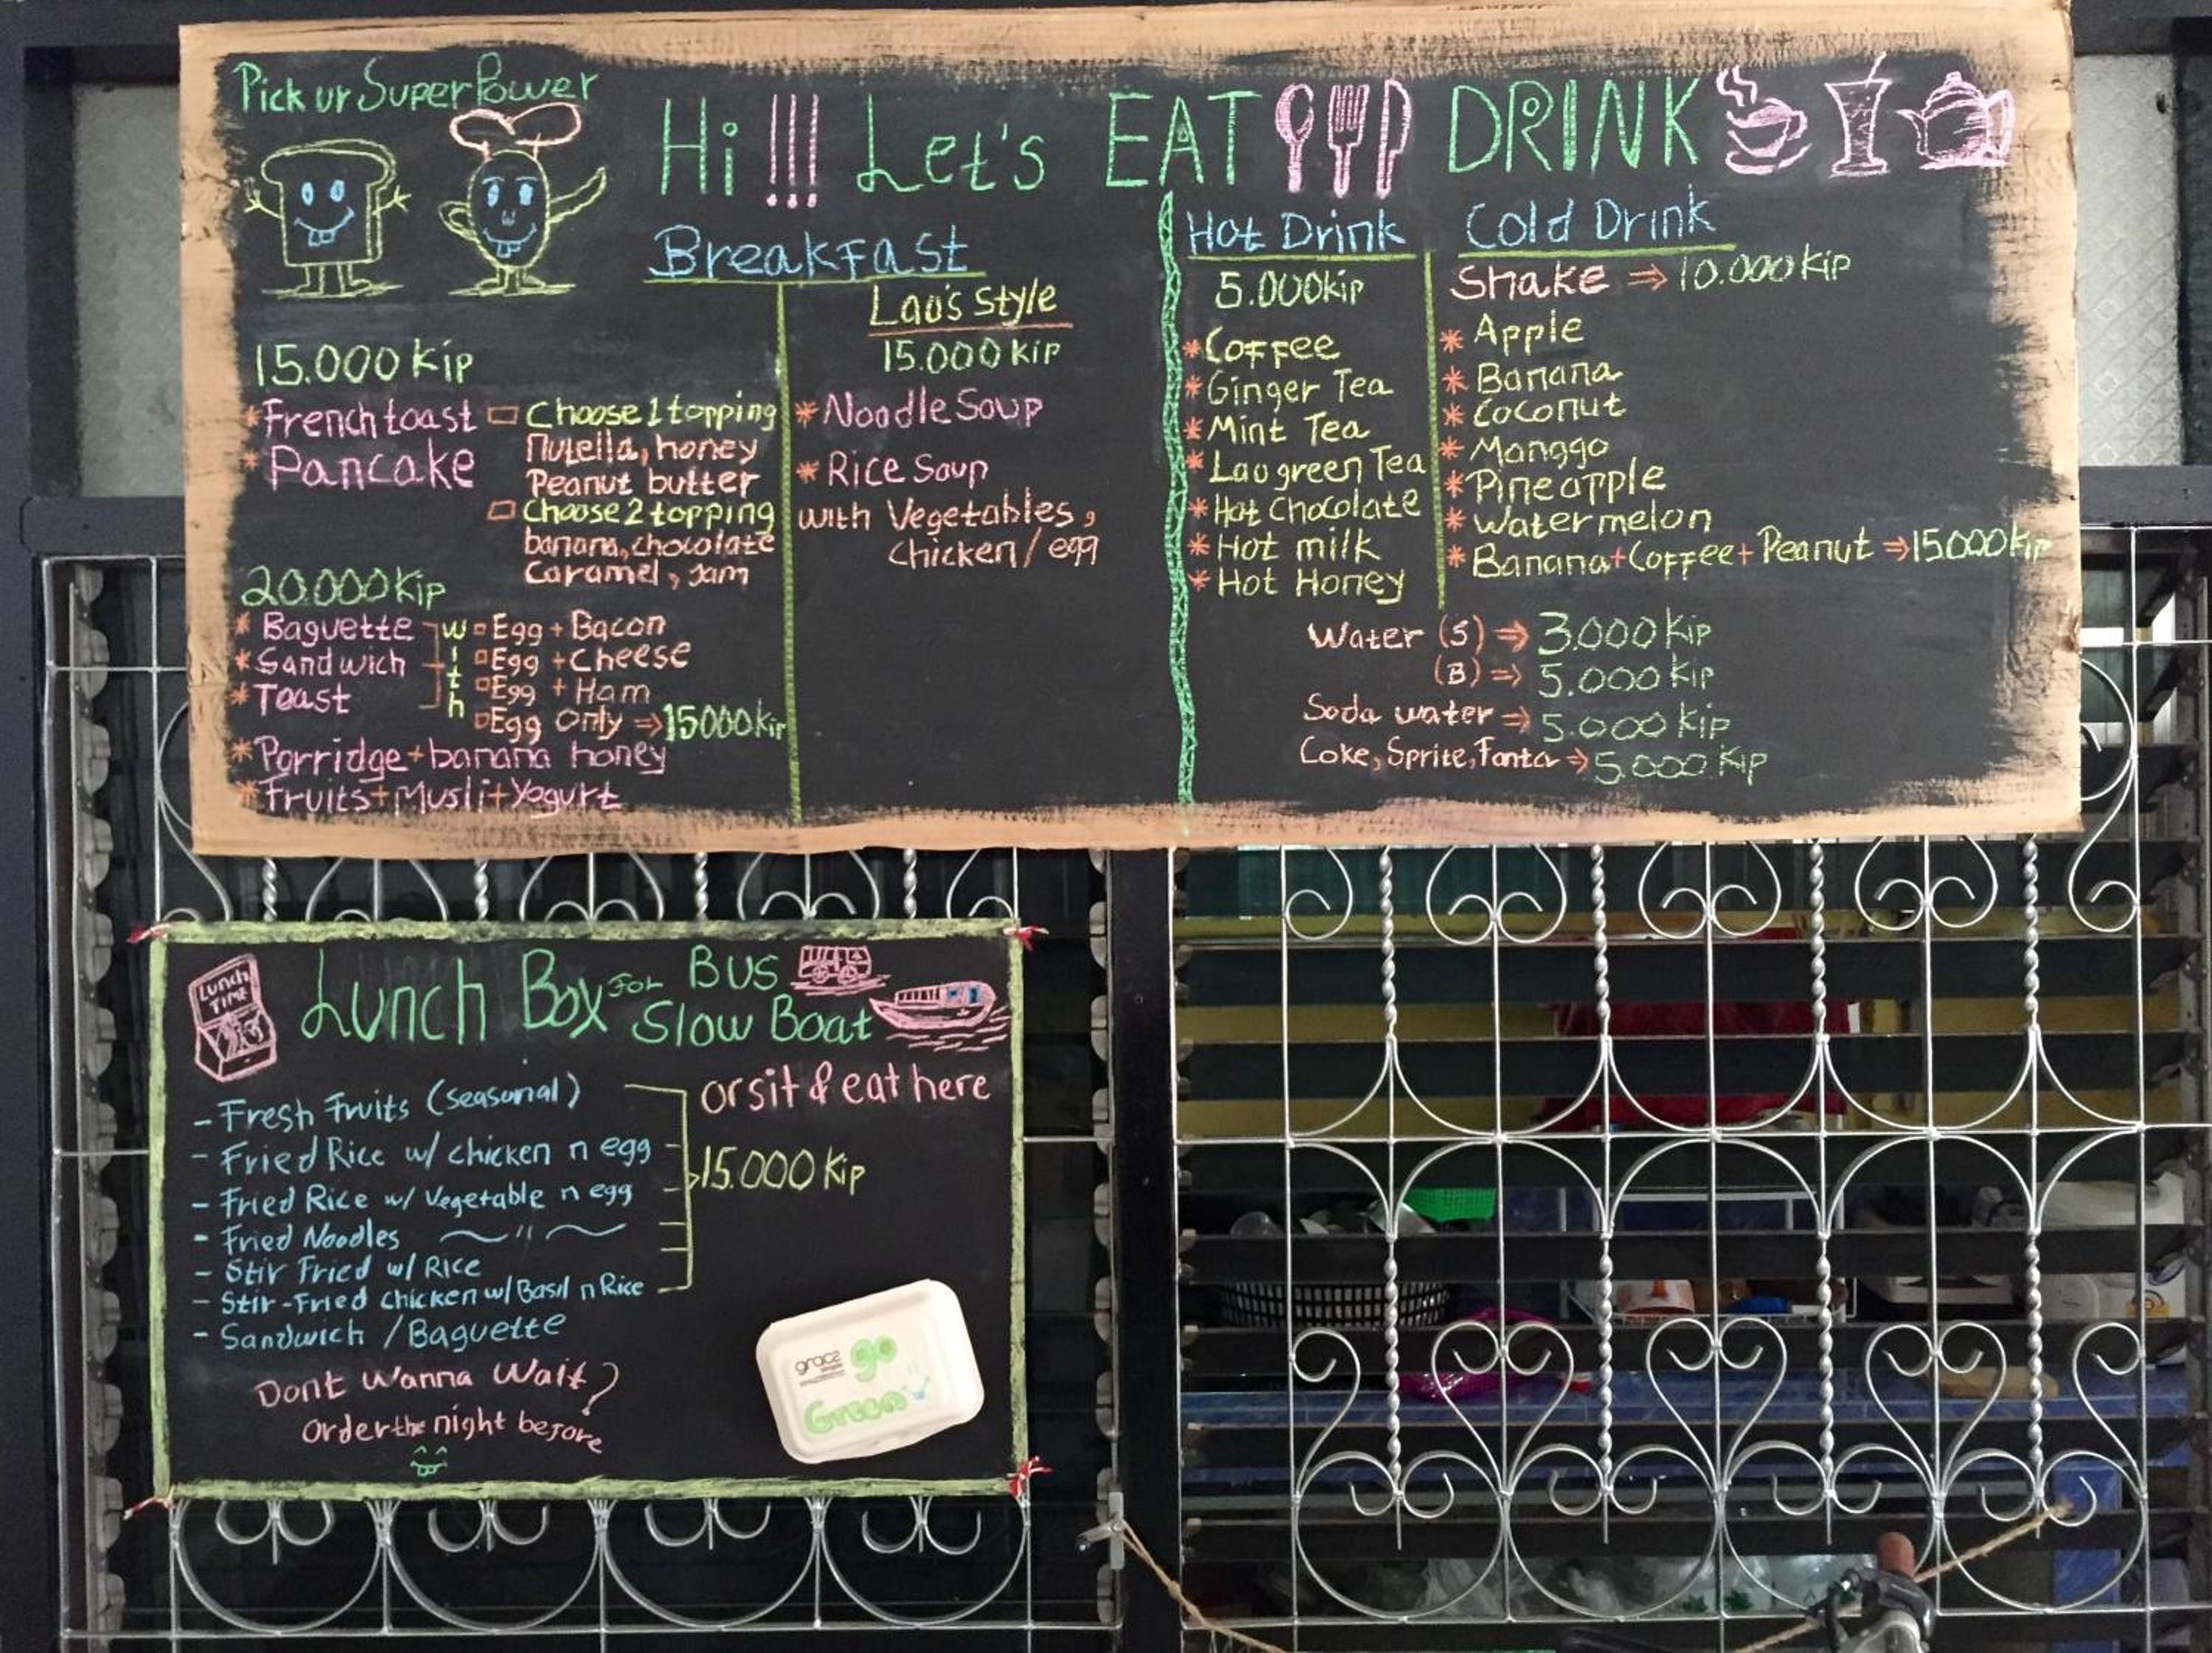 Pick ur Super Power
Hi!!! Let's EAT DRINK
Breakfast
15.000 Kip
*French toast
*Pancake
Choose 1 topping
Nutella, honey
Peanut butter
Choose 2 topping
banana, chocolate
Caramel, Jam
20.000 Kip
*Baguette
*Sandwich
*Toast
with
Egg + Bacon
Egg + Cheese
Egg + Ham
Egg Only ⇒ 15000 Kip
*Porridge + banana honey
*Fruits + Musli + Yogurt
Lao's Style
15.000 Kip
*Noodle Soup
*Rice Soup
with Vegetables,
chicken / egg
Hot Drink
5.000 kip
*Coffee
*Ginger Tea
*Mint Tea
*Lao green Tea
*Hot Chocolate
*Hot milk
*Hot Honey
Cold Drink
Shake ⇒ 10.000 Kip
*Apple
*Banana
*Coconut
*Manggo
*Pineapple
*Watermelon
*Banana + Coffee + Peanut ⇒ 15.000 Kip
Water (S) ⇒ 3.000 Kip
(B) ⇒ 5.000 Kip
Soda water ⇒ 5.000 Kip
Coke, Sprite, Fanta ⇒ 5.000 Kip
LUNCH TIME
Lunch Box For Bus
Slow Boat
or sit & eat here
- Fresh Fruits (seasonal)
- Fried Rice w/ chicken n egg
- Fried Rice w/ Vegetable n egg
- Fried Noodles ~ " ~
- Stir Fried w/ Rice
- Stir-Fried chicken w/ Basil n Rice
- Sandwich / Baguette
15.000 Kip
Dont Wanna Wait?
Order the night before
gracz
go
Green